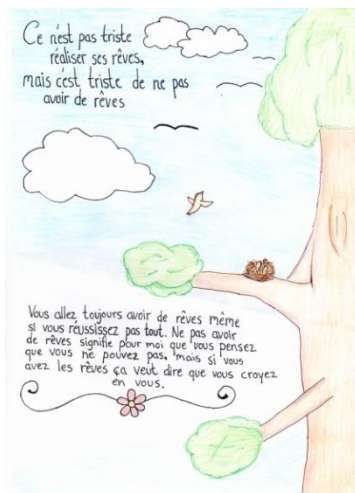 Ce n'est pas triste
réaliser ses rêves,
mais c'est triste de ne pas
avoir de rêves
Vous allez toujours avoir de rêves même
si vous réussissez pas tout. Ne pas avoir
de rêves signifie pour moi que vous pensez
que vous ne pouvez pas, mais si vous
avez les rêves ça veut dire que vous croyez
en vous.